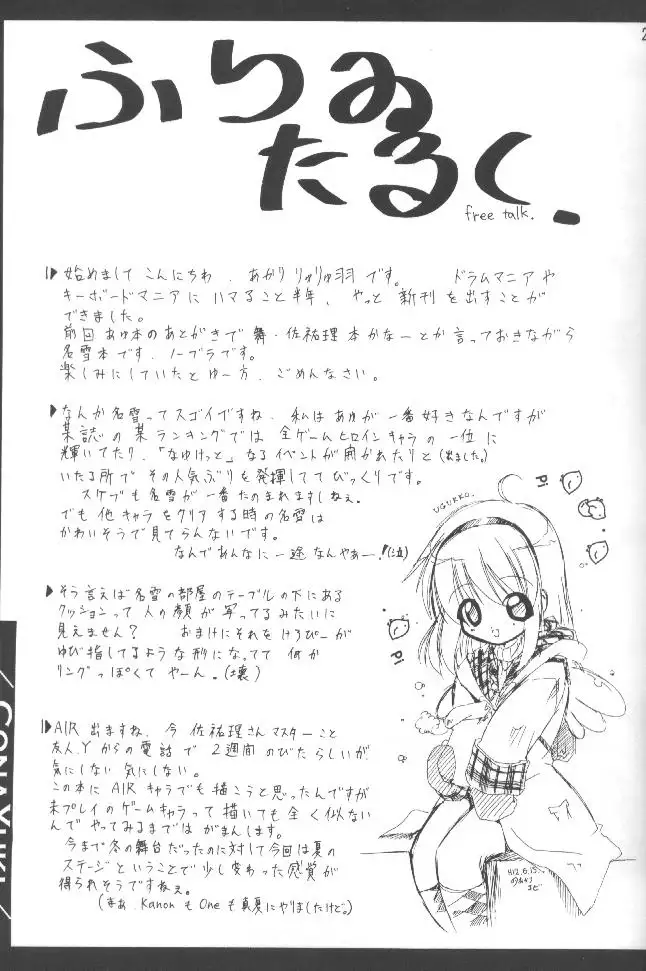 ふりゐ
たるく.
free talk.
始めまして こんにちわ、あかりりゅりゅ羽です。 ドラムマニアや
キーボードマニアにハマること半年、やっと新刊を出すことが
できました。
前回あゆ本のあとがきで舞・佐祐理本かなーとか言っておきながら
名雪本です、ノーブラです。
楽しみにしていたとゆー方、ごめんなさい。
なんか名雪ってスゴイですね、私はあゆが一番好きなんですが
某誌の某ランキングでは全ゲームヒロインキャラの一位に
輝いてたり、「なゆけっと」なるイベントが開かれたりと(出ました。)
いたる所でその人気ぶりを発揮しててびっくりです。
スケブも名雪が一番たのまれますしねぇ。
でも他キャラをクリアする時の名雪は
かわいそうで見てらんないです。
なんであんなに一途なんやぁー!(泣)
そう言えば名雪の部屋のテーブルの下にある
クッションって人の顔が写ってるみたいに
見えません? おまけにそれをけろぴーが
ゆび指してるような形になってて何か
リングっぽくてやーん。(壊)
AIR出ますね、今佐祐理さんマスターこと
友人.Yからの電話で2週間のびたらしいが
気にしない気にしない。
この本にAIRキャラでも描こうと思ったんですが
未プレイのゲームキャラって描いても全く似ない
んでやってみるまではがまんします。
今まで冬の舞台だったのに対して今回は夏の
ステージということで少し変わった感覚が
得られそうですねぇ。
(まぁ、KanonもOneも真夏にやりましたけど。)
UGUKKO.
Pi
Pi
H12.6.15.
CONAYUKI
2